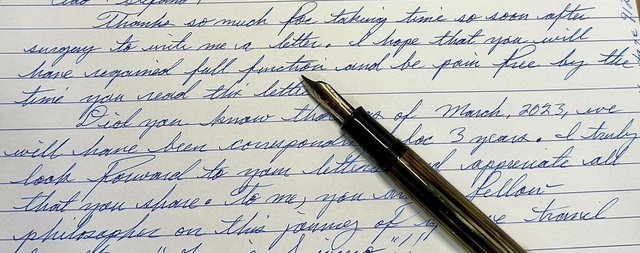 Thanks so much for taking time so soon after
surgery to write me a letter. I hope that you will
have regained full function and be pain free by the
time you read this letter
Did you know of March, 2023, we
will have been 3 years. I truly
look forward to your letters appreciate all
that you share. To me, you fellow
philosopher on this journey of travel